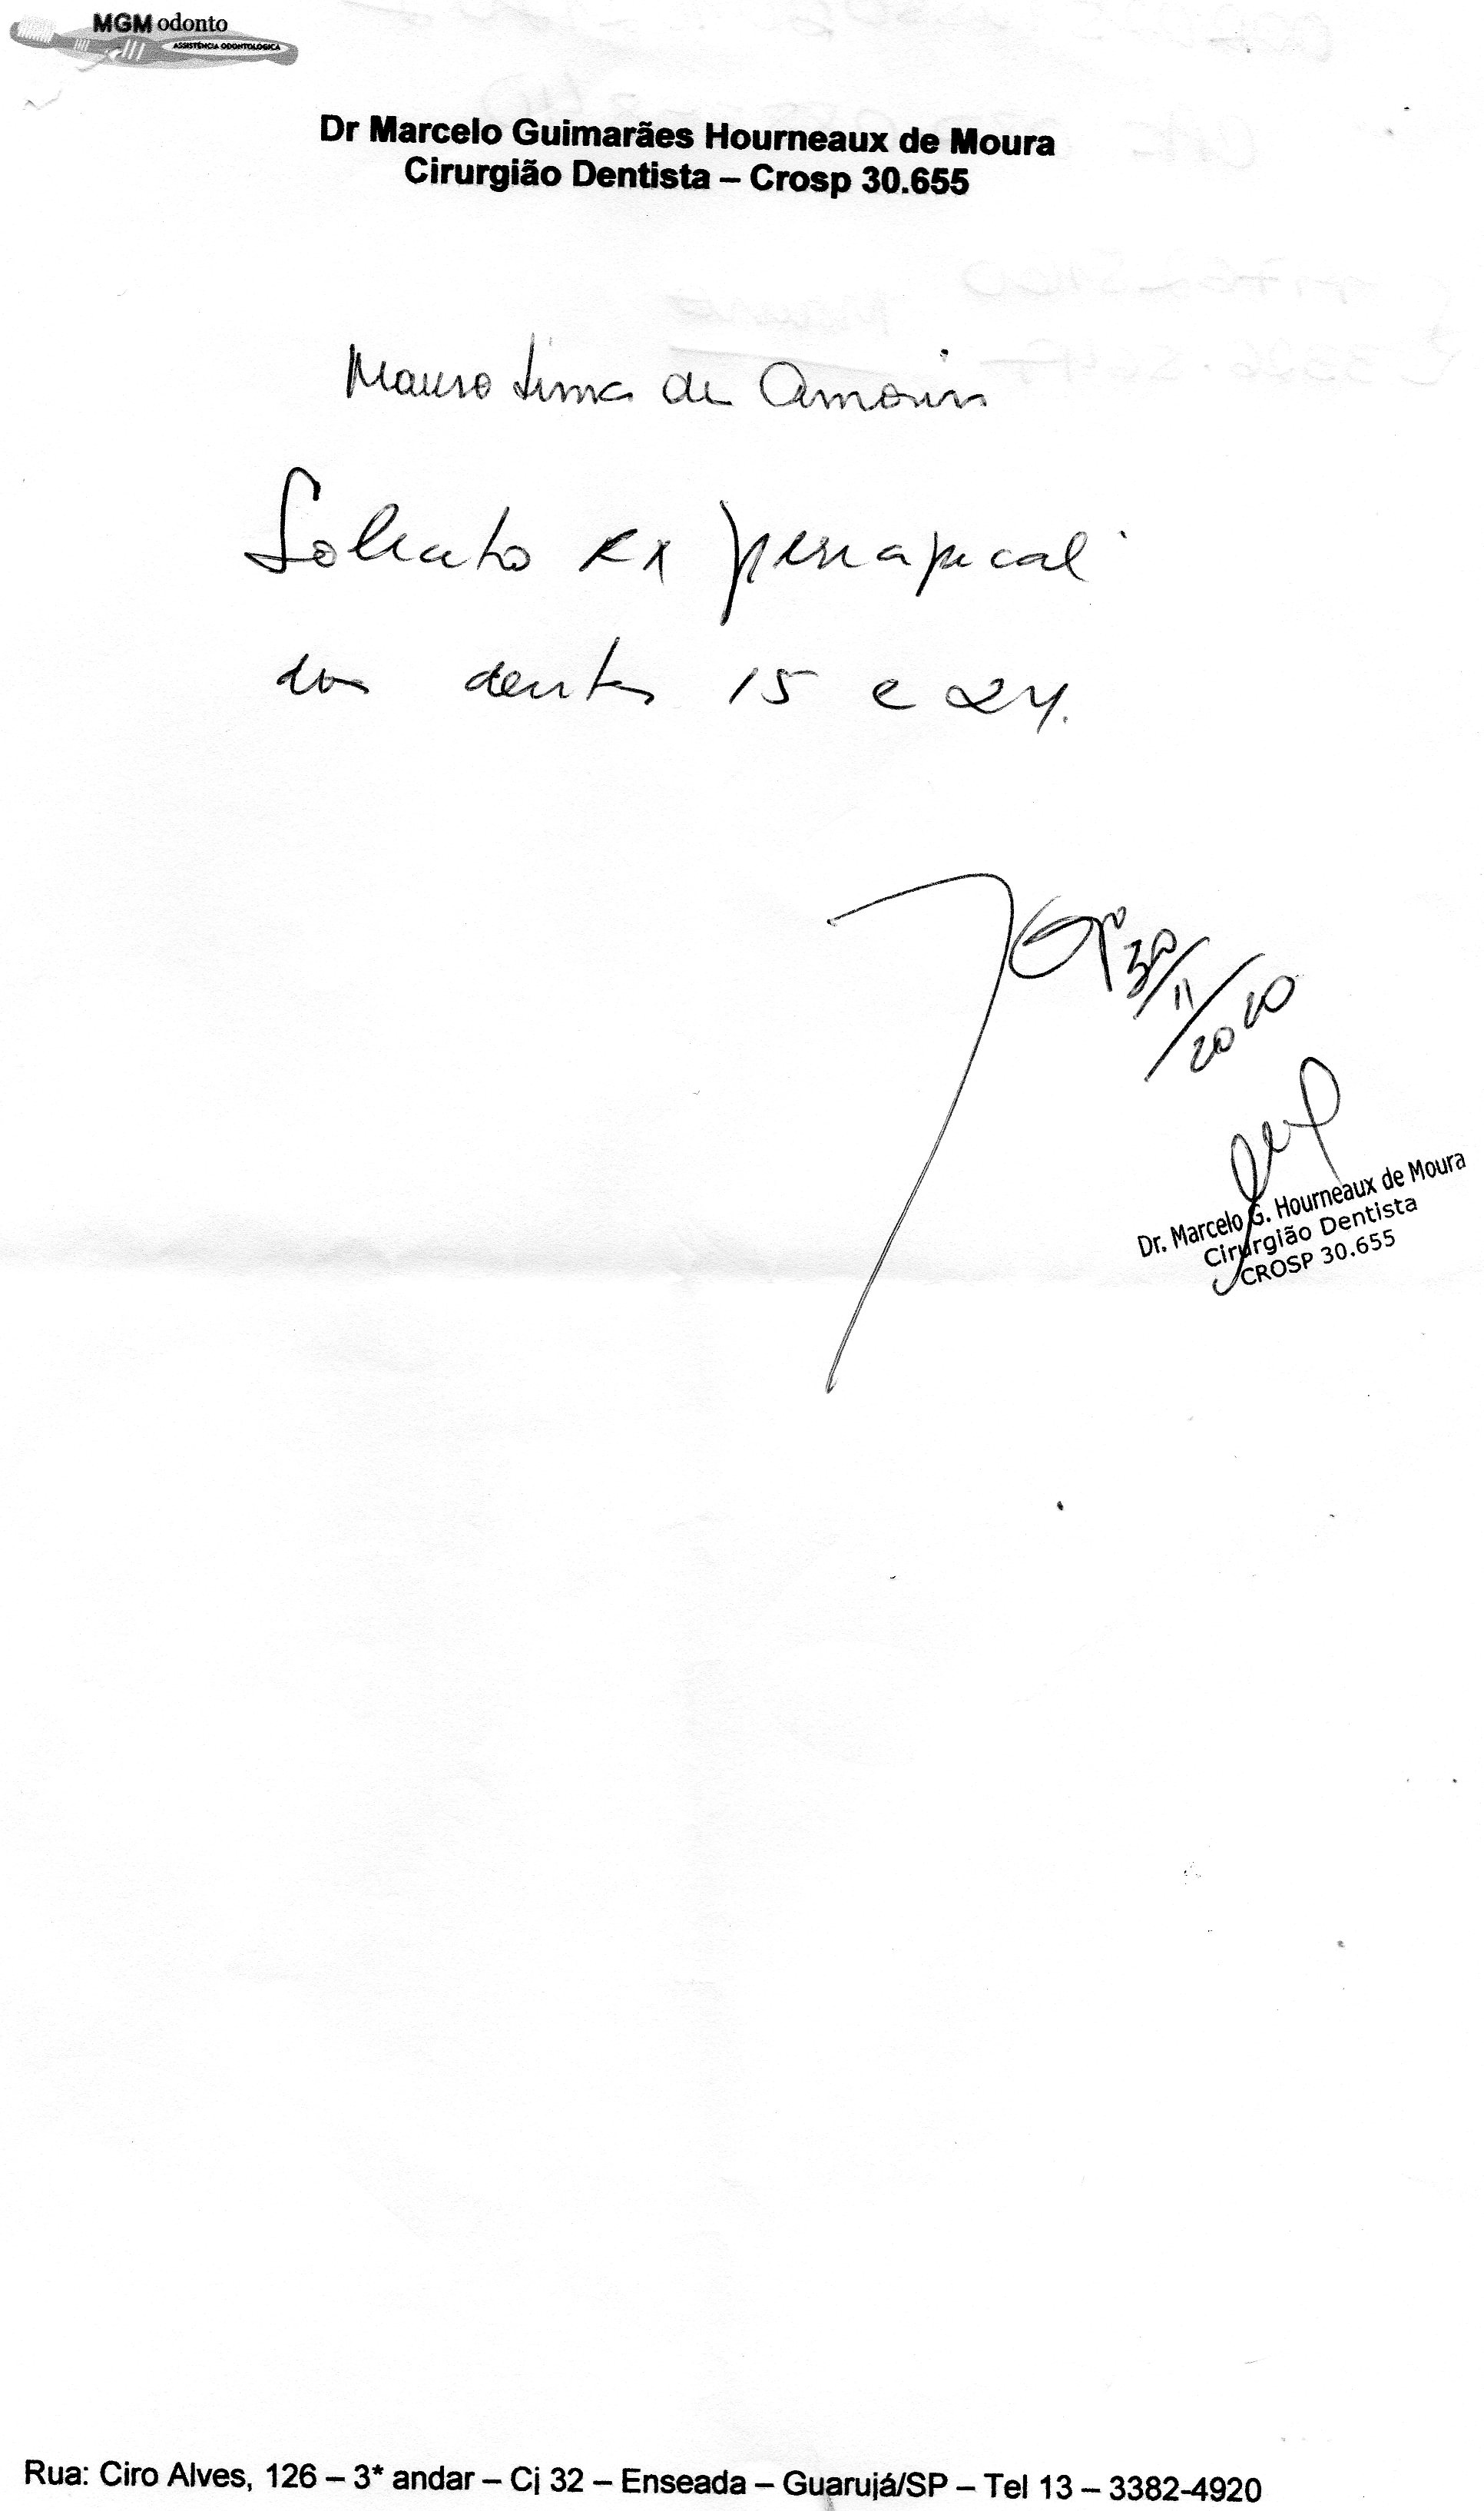 MGM odonto
ASSISTÊNCIA ODONTOLOGICA
Dr Marcelo Guimarães Hourneaux de Moura
Cirurgião Dentista – Crosp 30.655
Mauro Lima de Amorim
Solicito RX periapical
dos dentes 15 e 24.
30/11/2020
Dr. Marcelo G. Hourneaux de Moura
Cirurgião Dentista
CROSP 30.655
Rua: Ciro Alves, 126 – 3* andar – Cj 32 – Enseada – Guarujá/SP – Tel 13 – 3382-4920